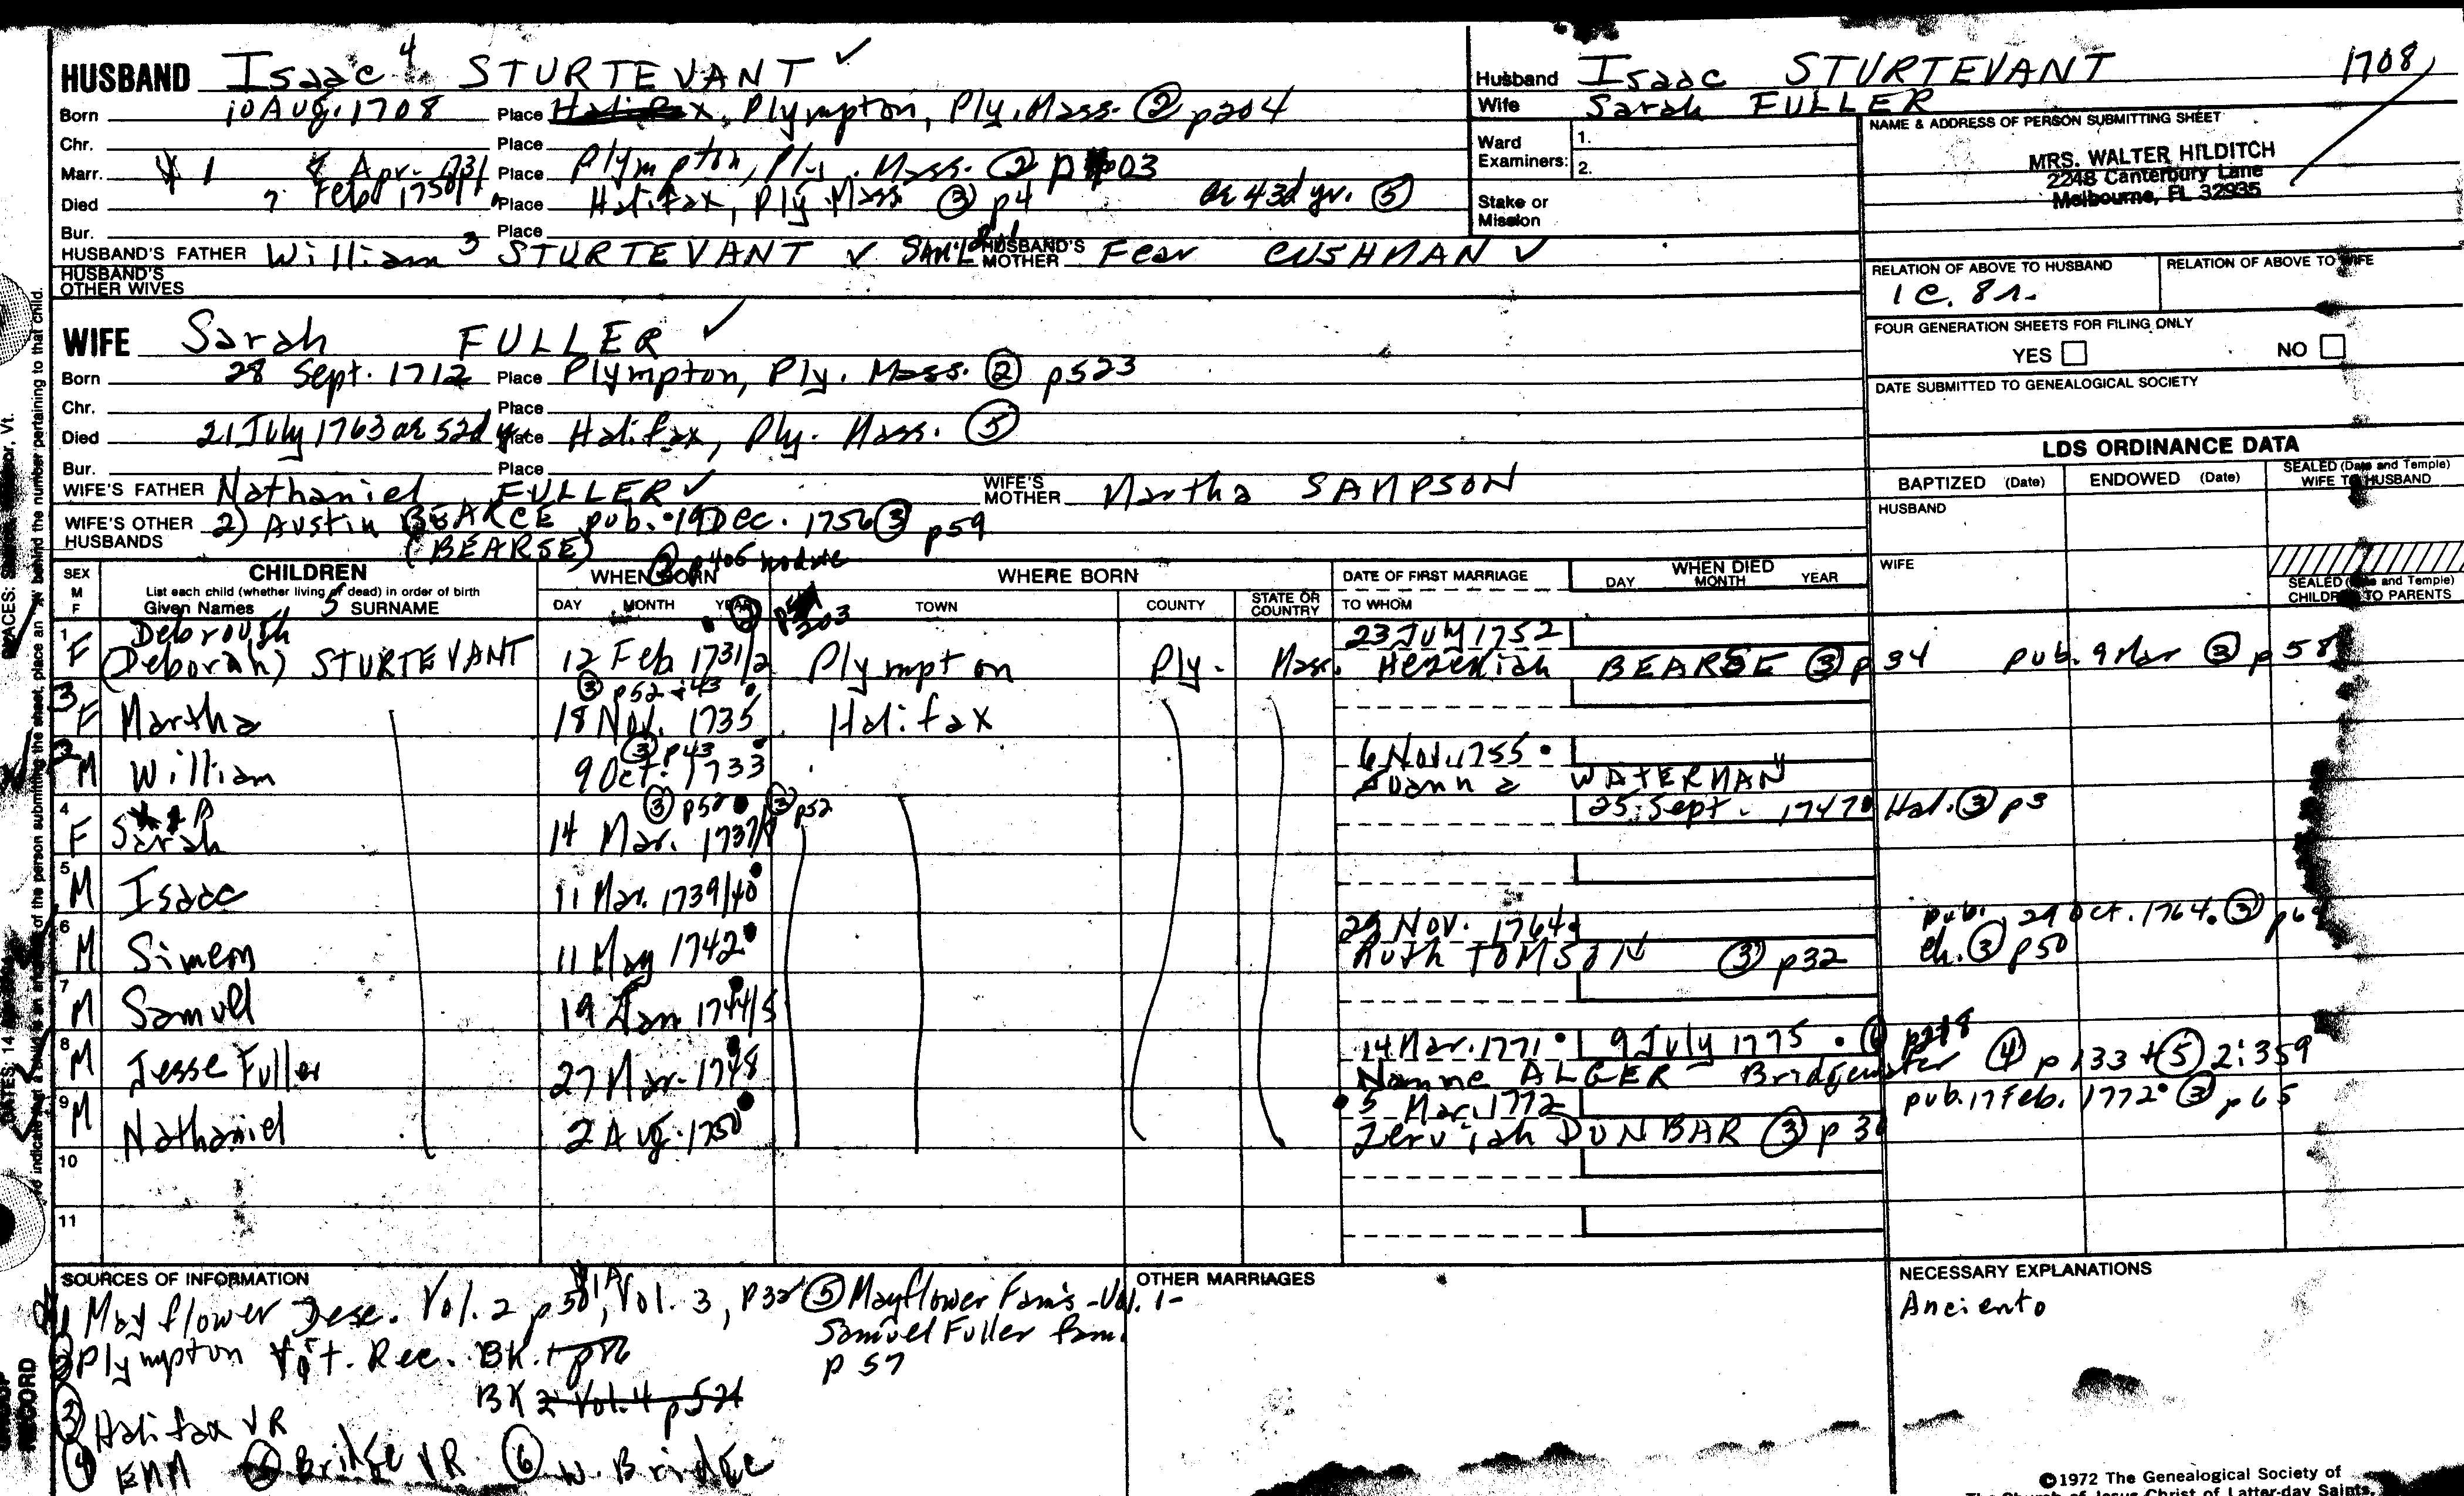 HUSBAND Isaac 4 STURTEVANT ✓
Born 10 Aug. 1708 Place Halifax, Plympton, Ply. Mass. ② p204
Chr. Place
Marr. Apr. 1731 Place Plympton, Ply. Mass. ② p 403
Died 7 Feb 1750/1 Place Halifax, Ply. Mass ③ p4 ae 43d yr. ⑤
Bur. Place
HUSBAND'S FATHER William 3 STURTEVANT ✓ SAM'L HUSBAND'S MOTHER Fear CUSHMAN ✓
HUSBAND'S OTHER WIVES
Husband Isaac STURTEVANT 1708
Wife Sarah FULLER
Ward Examiners: 1.
2.
Stake or Mission
NAME & ADDRESS OF PERSON SUBMITTING SHEET
MRS. WALTER HILDITCH
2248 Canterbury Lane
Melbourne, FL 32935
RELATION OF ABOVE TO HUSBAND
RELATION OF ABOVE TO WIFE
1 C. 8 r.
FOUR GENERATION SHEETS FOR FILING ONLY
YES NO
DATE SUBMITTED TO GENEALOGICAL SOCIETY
WIFE Sarah FULLER ✓
Born 28 Sept. 1712 Place Plympton, Ply. Mass. ② p523
Chr. Place
Died 21 July 1763 ae 52d yr. Place Halifax, Ply. Mass. ⑤
Bur. Place
WIFE'S FATHER Nathaniel FULLER ✓ WIFE'S MOTHER Martha SAMPSON
WIFE'S OTHER HUSBANDS 2) Austin BEARCE pub. 19 Dec. 1756 ③ p59
(BEARSE) p405 no date
LDS ORDINANCE DATA
BAPTIZED (Date) ENDOWED (Date) SEALED (Date and Temple) WIFE TO HUSBAND
HUSBAND
WIFE
SEALED (Date and Temple) CHILDREN TO PARENTS
SEX M F
CHILDREN
List each child (whether living or dead) in order of birth
Given Names 5 SURNAME
WHEN BORN
DAY MONTH YEAR
WHERE BORN
TOWN COUNTY STATE OR COUNTRY
DATE OF FIRST MARRIAGE
TO WHOM
WHEN DIED
DAY MONTH YEAR
② 203
1 F Debrough 23 July 1752
(Deborah) STURTEVANT 12 Feb 1731/2 Plympton Ply. Mass. Hezekiah BEARSE ③ p 34 pub. 9 Mar ③ p 58
③ p52 + 43
3 F Martha 18 Nov. 1735 Halifax
③ p43 6 Nov. 1755
2 M William 9 Oct. 1733 Joanna WATERMAN
③ p52 ③ p52 25 Sept. 1747 Hal. ③ p3
4 F Sarah 14 Mar. 1737/8
5 M Isaac 11 Mar. 1739/40
29 Nov. 1764 pub. 29 Oct. 1764 ③ p64
6 M Simeon 11 May 1742 Ruth TOMSON ③ p32 ch. ③ p50
7 M Samuell 19 Jan 1744/5
14 Mar. 1771 9 July 1775 ⑥ p218
8 M Jesse Fuller 27 Mar. 1748 Namne ALGER Bridgewater ④ p 133 + ⑤ 2:359
5 Mar. 1772 pub. 17 Feb. 1772 ③ p65
9 M Nathaniel 2 Aug. 1750 Zeruiah DUNBAR ③ p 36
10
11
SOURCES OF INFORMATION
Mayflower Desc. Vol. 2 p50, Vol. 3, p32 ⑤ Mayflower Fam's - Vol. 1 -
Samuel Fuller fam.
p 57
② Plympton Vit. Rec. BK. 1 p86
BK 2 Vol. 4 p521
③ Halifax VR
④ EMM Bridge VR ⑥ W. Bridge
OTHER MARRIAGES
NECESSARY EXPLANATIONS
Anciento
©1972 The Genealogical Society of
The Church of Jesus Christ of Latter-day Saints,